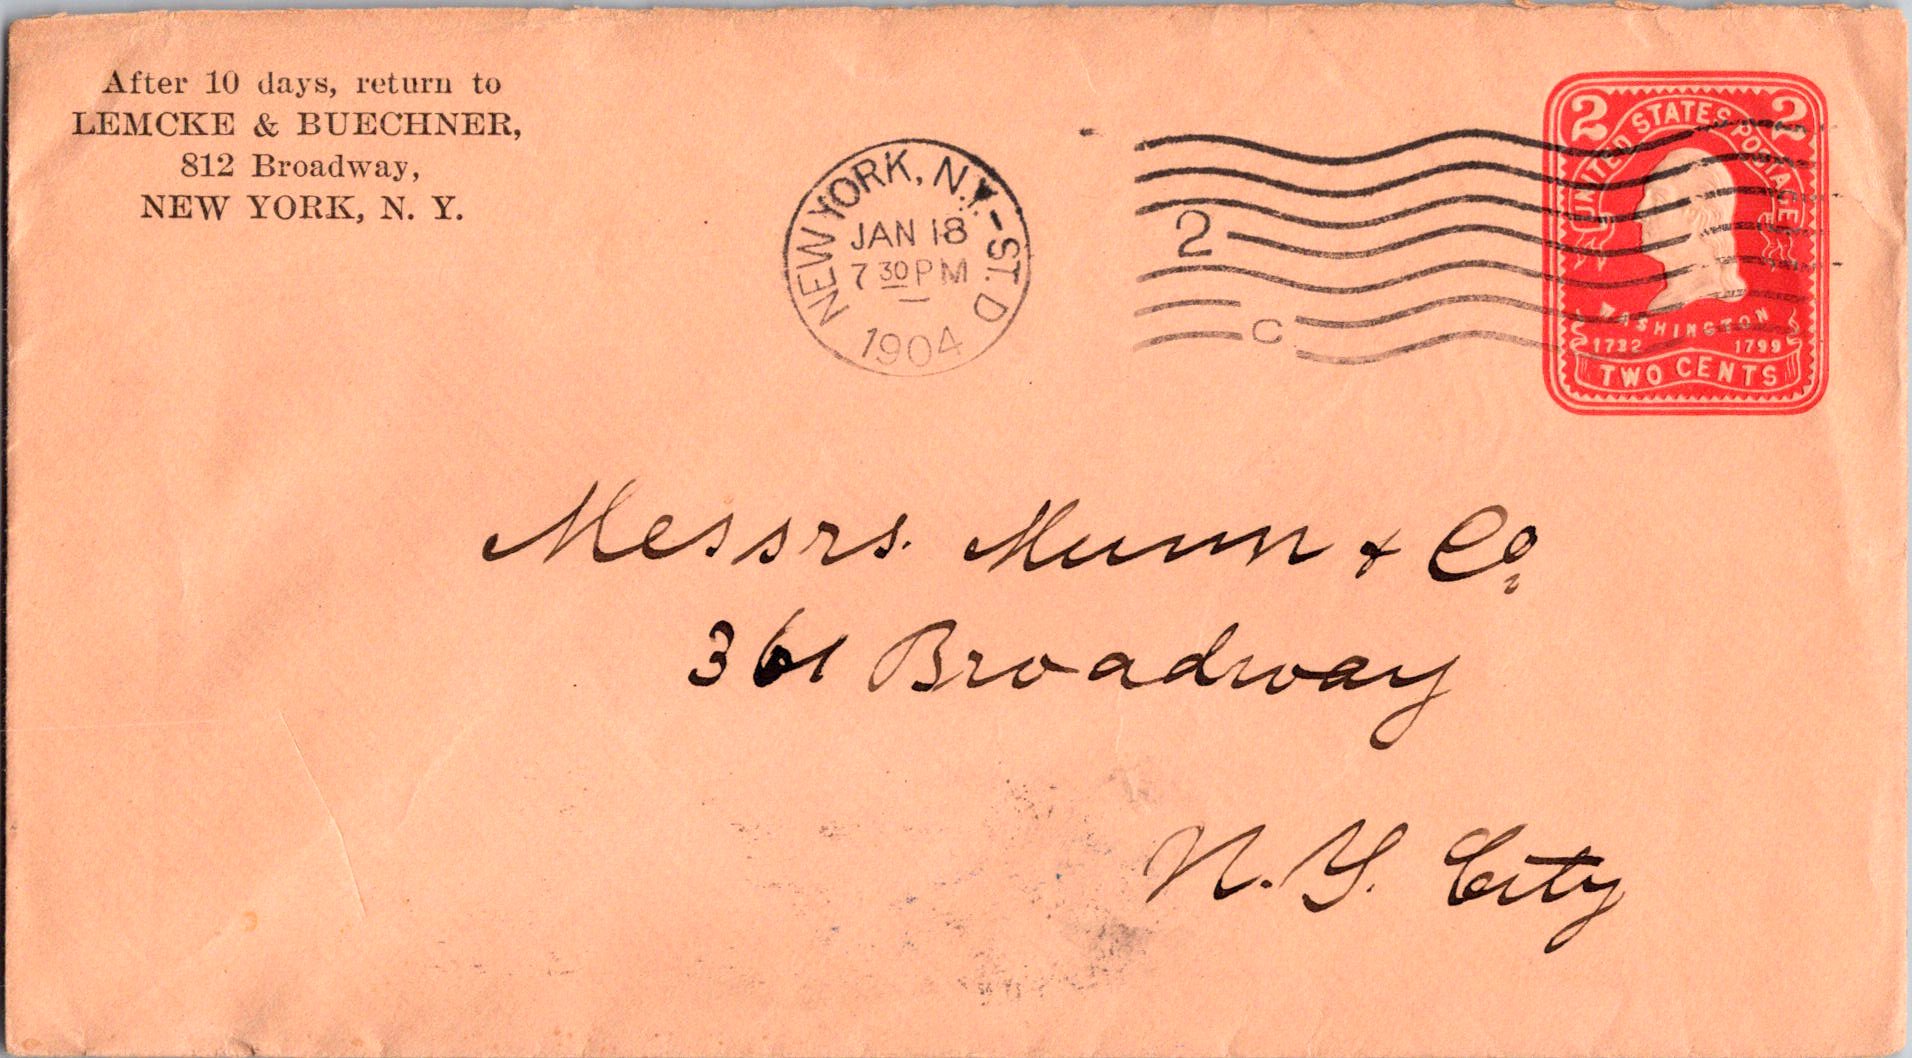 After 10 days, return to
LEMCKE & BUECHNER,
812 Broadway,
NEW YORK, N. Y.
NEW YORK, N.Y.-ST. D
JAN 18
7 30 PM
1904
2
C
2 2
UNITED STATES POSTAGE
WASHINGTON
1732 1799
TWO CENTS
Messrs. Munn & Co,
361 Broadway
N. Y. City